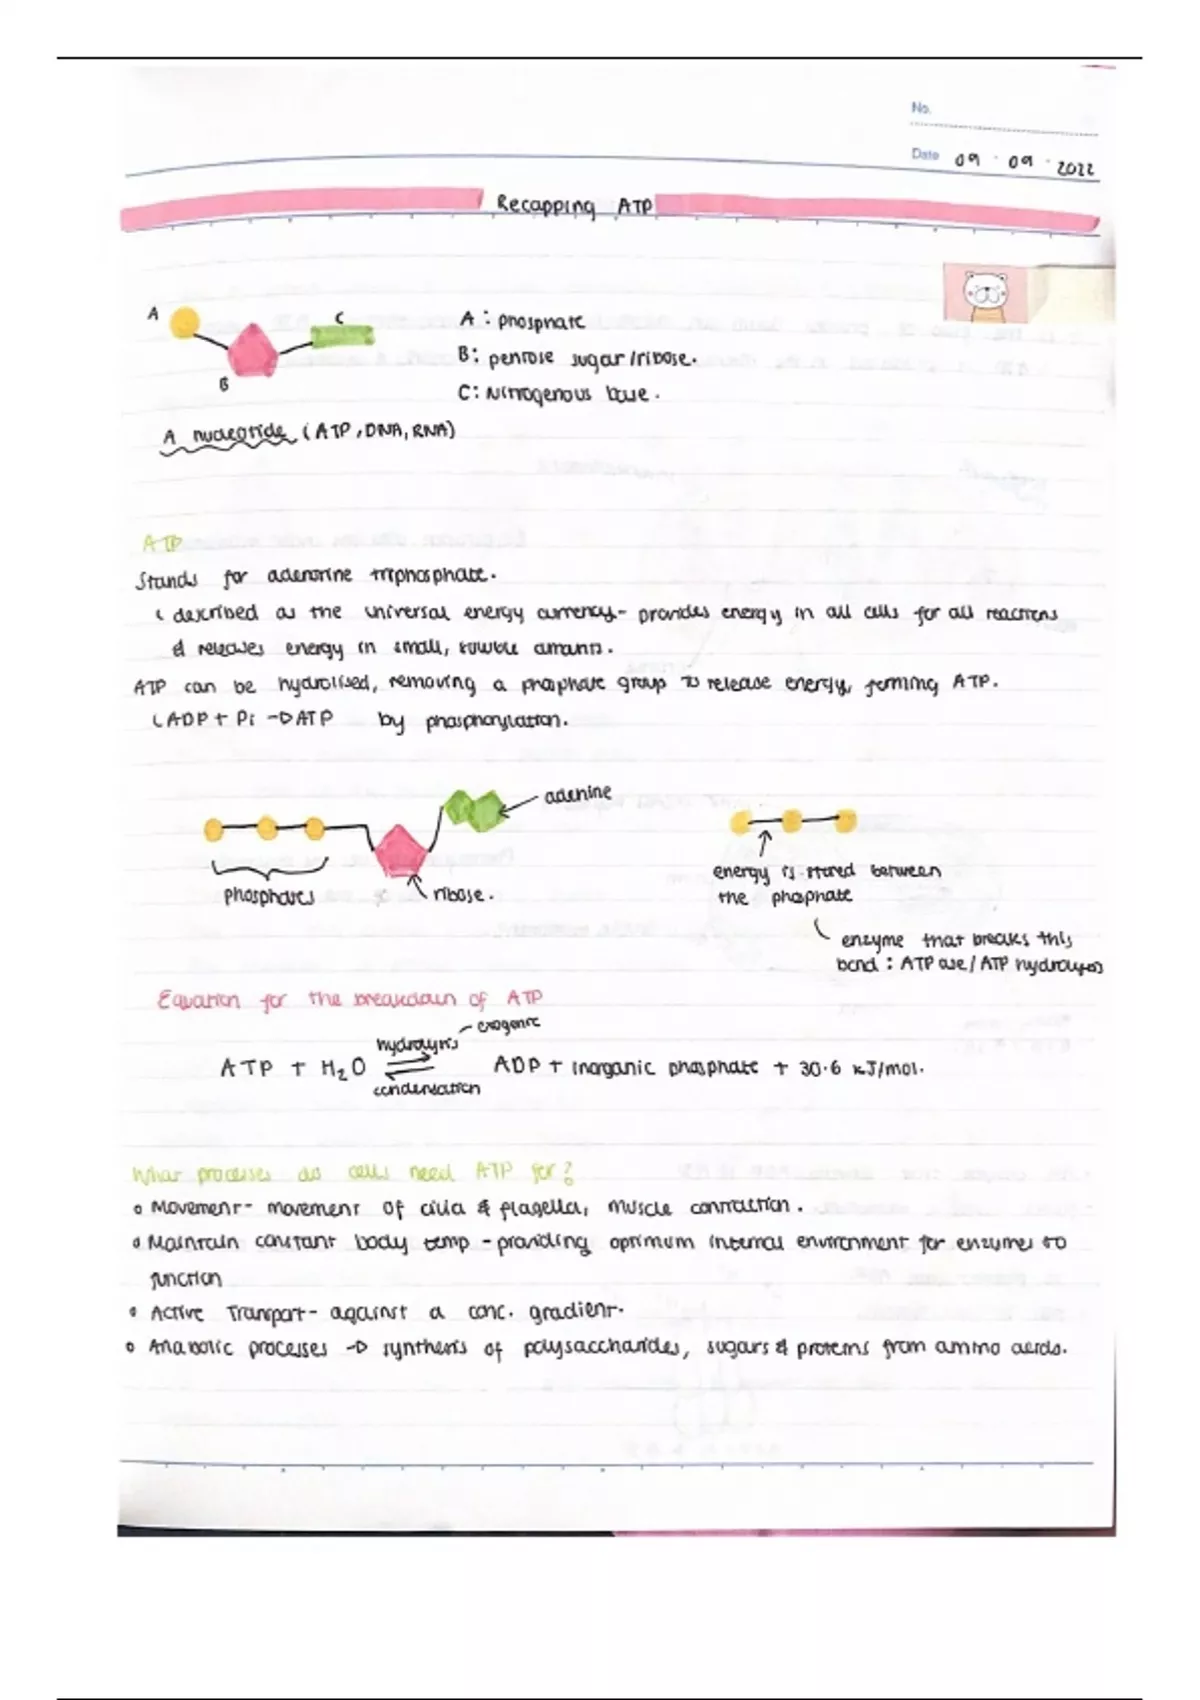 No.
Date 09 · 09 · 2022
Recapping ATP
A
C
B
A : phosphate
B: pentose sugar/ribose.
C: Nitrogenous base.
A nucleotide (ATP, DNA, RNA)
ATP
Stands for adenosine triphosphate.
described as the universal energy currency - provides energy in all cells for all reactions
& releases energy in small, soluble amounts.
ATP can be hydrolised, removing a phosphate group to release energy, forming ATP.
ADP + Pi → ATP by phosphorylation.
adenine
phosphates
ribose.
energy is stored between
the phosphate
enzyme that breaks this
bond : ATPase/ATP hydrolysis
Equation for the breakdown of ATP
exogenic
hydrolysis
ATP + H2O ⇌ ADP + inorganic phosphate + 30.6 kJ/mol.
condensation
What processes do cells need ATP for?
o Movement - movement of cilia & flagella, muscle contraction.
o Maintain constant body temp - providing optimum internal environment for enzymes to
function
• Active Transport - against a conc. gradient.
o Anabolic processes → synthesis of polysaccharides, sugars & proteins from amino acids.